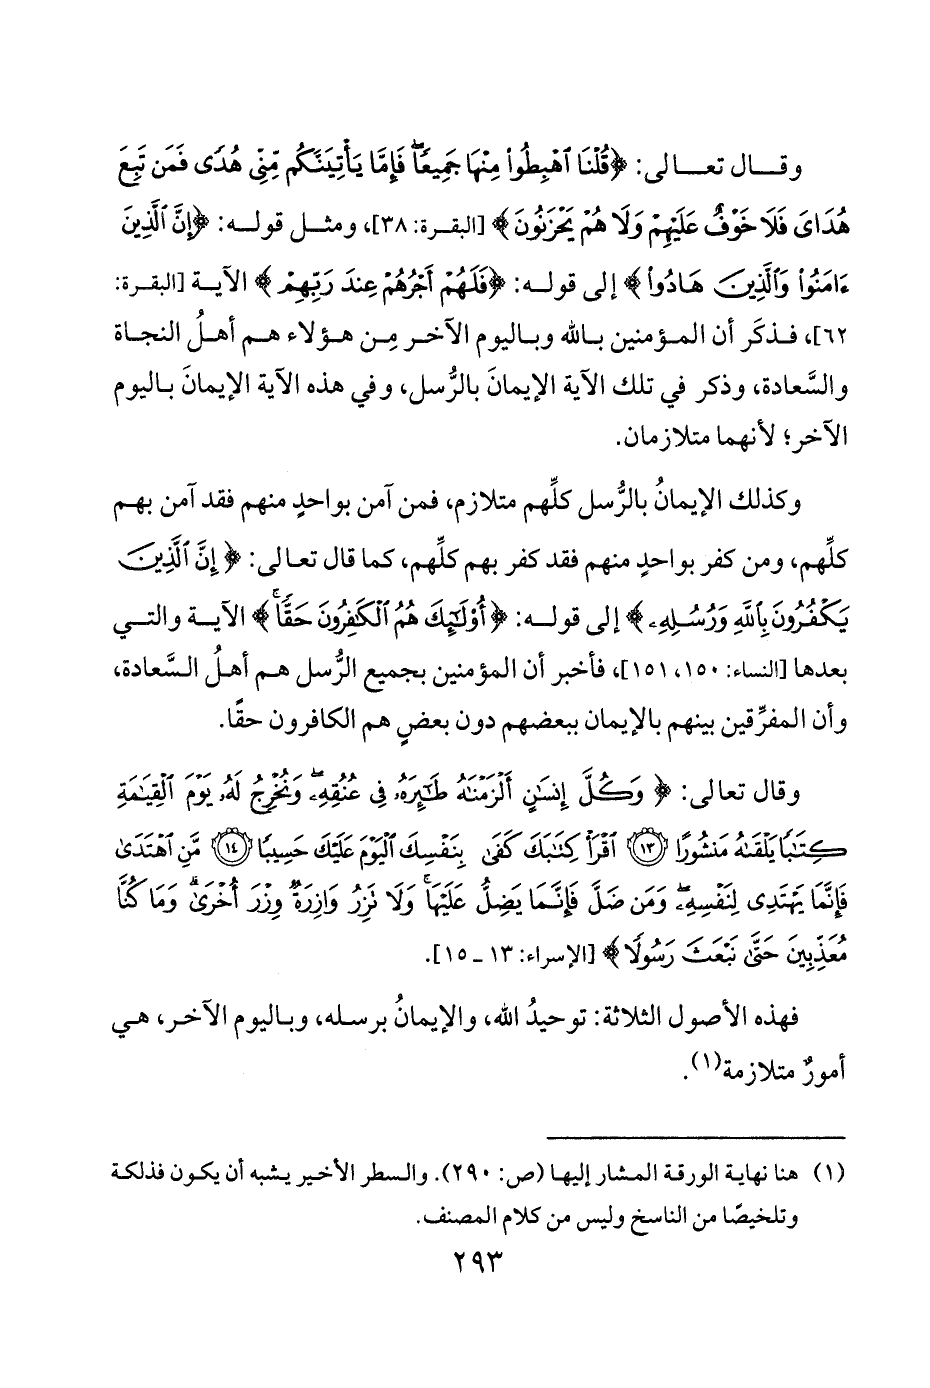 وقال تعالى: ﴿قُلْنَا ٱهْبِطُوا۟ مِنْهَا جَمِيعًا ۖ فَإِمَّا يَأْتِيَنَّكُم مِّنِّى هُدًى فَمَن تَبِعَ
هُدَاىَ فَلَا خَوْفٌ عَلَيْهِمْ وَلَا هُمْ يَحْزَنُونَ﴾ [البقرة: ٣٨]، ومثل قوله: ﴿إِنَّ ٱلَّذِينَ
ءَامَنُوا۟ وَٱلَّذِينَ هَادُوا۟﴾ إلى قوله: ﴿فَلَهُمْ أَجْرُهُمْ عِندَ رَبِّهِمْ﴾ الآية [البقرة:
٦٢]، فذكَر أن المؤمنين بالله وباليوم الآخر مِن هؤلاء هم أهلُ النجاة
والسَّعادة، وذكر في تلك الآية الإيمانَ بالرُّسل، وفي هذه الآية الإيمانَ باليوم
الآخر؛ لأنهما متلازمان.
وكذلك الإيمانُ بالرُّسل كلِّهم متلازم، فمن آمن بواحدٍ منهم فقد آمن بهم
كلِّهم، ومن كفر بواحدٍ منهم فقد كفر بهم كلِّهم، كما قال تعالى: ﴿إِنَّ ٱلَّذِينَ
يَكْفُرُونَ بِٱللَّهِ وَرُسُلِهِۦ﴾ إلى قوله: ﴿أُو۟لَٰٓئِكَ هُمُ ٱلْكَٰفِرُونَ حَقًّا ۚ﴾ الآية والتي
بعدها [النساء: ١٥٠، ١٥١]، فأخبر أن المؤمنين بجميع الرُّسل هم أهلُ السَّعادة،
وأن المفرِّقين بينهم بالإيمان ببعضهم دون بعضٍ هم الكافرون حقًا.
وقال تعالى: ﴿وَكُلَّ إِنسَٰنٍ أَلْزَمْنَٰهُ طَٰٓئِرَهُۥ فِى عُنُقِهِۦ ۖ وَنُخْرِجُ لَهُۥ يَوْمَ ٱلْقِيَٰمَةِ
كِتَٰبًا يَلْقَىٰهُ مَنشُورًا ﴿١٣﴾ ٱقْرَأْ كِتَٰبَكَ كَفَىٰ بِنَفْسِكَ ٱلْيَوْمَ عَلَيْكَ حَسِيبًا ﴿١٤﴾ مَّنِ ٱهْتَدَىٰ
فَإِنَّمَا يَهْتَدِى لِنَفْسِهِۦ ۖ وَمَن ضَلَّ فَإِنَّمَا يَضِلُّ عَلَيْهَا ۚ وَلَا تَزِرُ وَازِرَةٌ وِزْرَ أُخْرَىٰ ۗ وَمَا كُنَّا
مُعَذِّبِينَ حَتَّىٰ نَبْعَثَ رَسُولًا﴾ [الإسراء: ١٣ - ١٥].
فهذه الأصول الثلاثة: توحيدُ الله، والإيمانُ برسله، وباليوم الآخر، هي
أمورٌ متلازمة(١).
(١) هنا نهاية الورقة المشار إليها (ص: ٢٩٠). والسطر الأخير يشبه أن يكون فذلكة
وتلخيصًا من الناسخ وليس من كلام المصنف.
٢٩٣